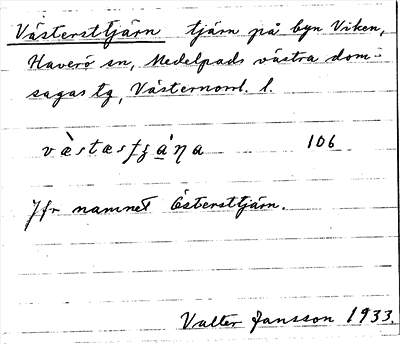 Västersttjärn tjärn på byn Viken,
Haverö sn, Medelpads västra dom-
sagas tg, Västernorrl. l.
106
Jfr namnet Östersttjärn.
Valter Jansson 1933.